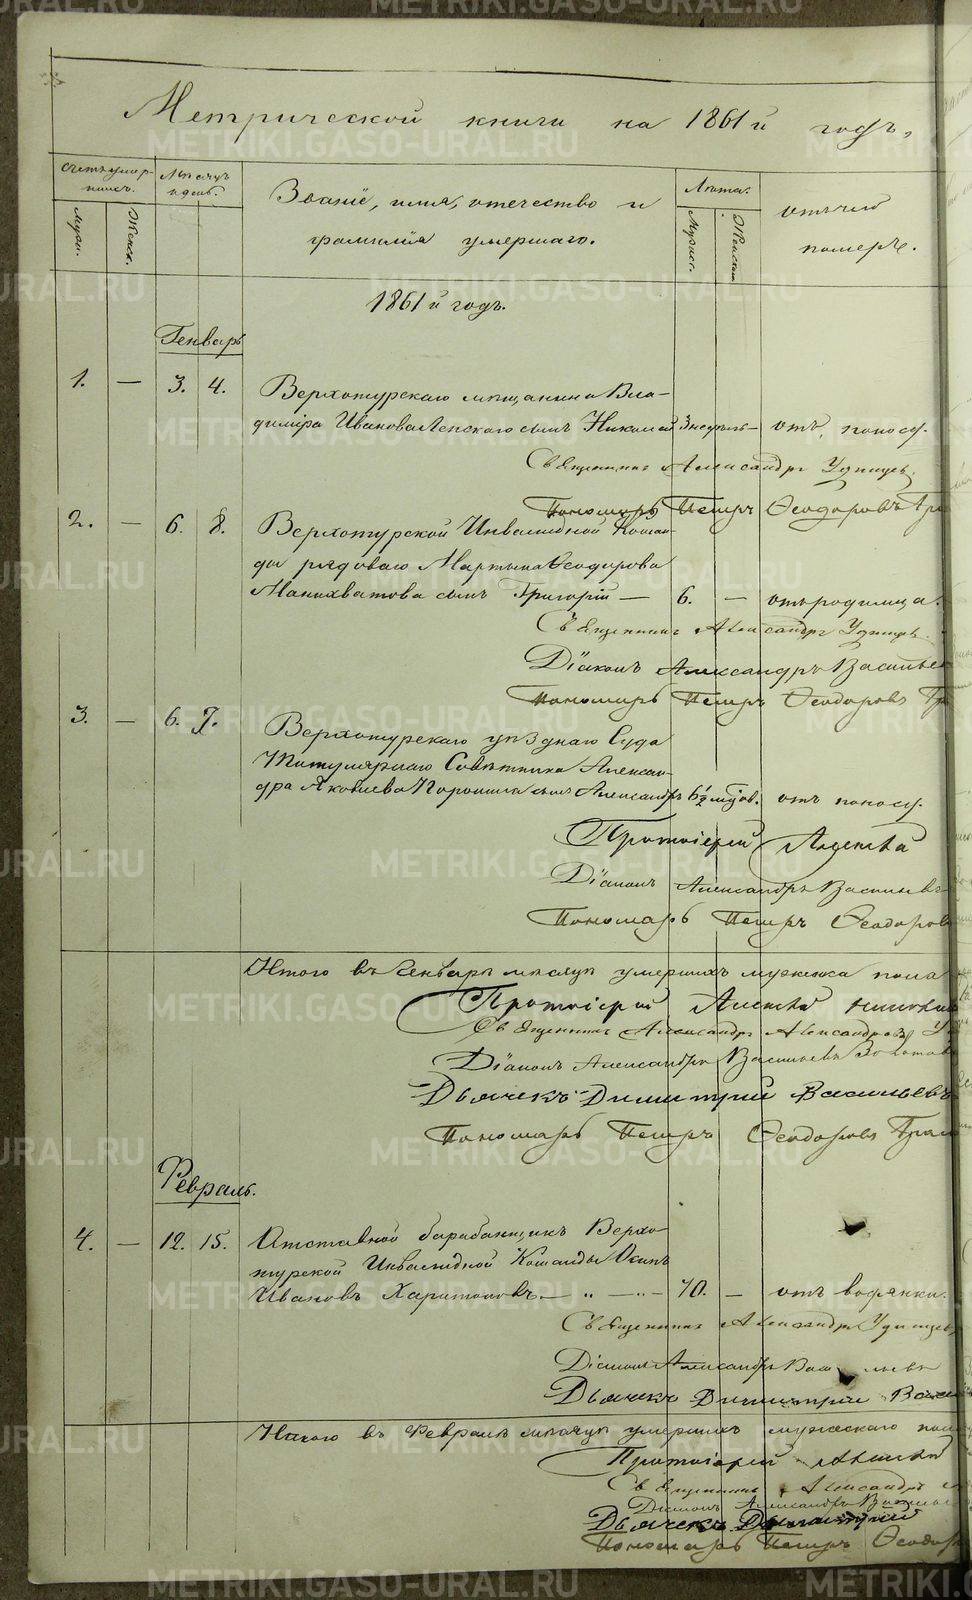 METRIKI.GASO-URAL.RU
Метрической книги на 1861й годъ,
Счетъ умер-
шихъ.
Мѣсяцъ
и день.
Званіе, имя, отечество и
фамилія умершаго.
Лѣта.
отъ чего
померъ.
Муж.
Женск.
Мужск.
Женскаго
1861й годъ.
Генварь
1. — 3. 4. Верхотурскаго мѣщанина Вла-
диміра Иванова сынъ Николай отъ поносу.
Священникъ Александръ Удинцев.
Пономарь Петръ Ѳеодоровъ
2. — 6. 8. Верхотурской Инвалидной Коман-
ды рядоваго Мартына Ѳеодорова
сынъ Григорій — 6. — отъ родимца.
Священникъ Александръ Удинцев.
Діаконъ Александръ Васильев
Пономарь Петръ Ѳеодоровъ
3. — 6. 7. Верхотурскаго уѣзднаго Суда
Титулярнаго Совѣтника Алексан-
дра Яковлева сынъ Александръ отъ поносу.
Протоіерей
Діаконъ Александръ Васильевъ
Пономарь Петръ Ѳеодоров
Итого въ Генварѣ мѣсяцѣ умершихъ мужеска пола
Протоіерей
Священникъ Александръ Александровъ
Діаконъ Александръ Васильевъ
Дьячекъ Димитрий Васильевъ
Пономарь Петръ Ѳеодоровъ
Февраль.
4. — 12. 15. Отставной барабанщикъ Верхо-
турской Инвалидной Команды Осипъ
Ивановъ Харитоновъ. — „ — 70. — отъ водянки.
Священникъ Александръ Удинцев
Діаконъ Александръ Васильевъ
Дьячекъ Димитрий
Итого въ Февралѣ мѣсяцѣ умершихъ мужескаго
Протоіерей
Священникъ Александръ
Діаконъ Александръ
Дьячекъ Димитрий
Пономарь Петръ Ѳеодор